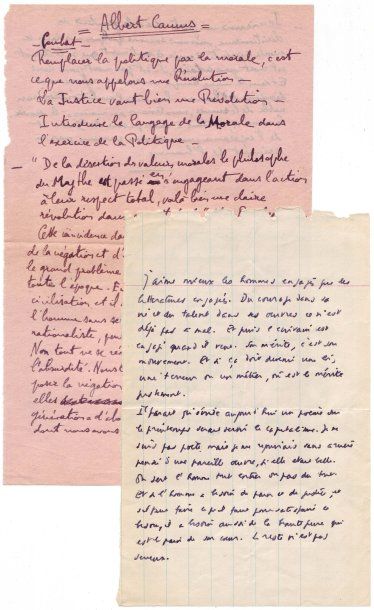 = Albert Camus =
- Combat -
Remplacer la politique par la morale, c'est
ce que nous appelons une Révolution -
La Justice vaut bien une Révolution -
Introduire le langage de la Morale dans
l'exercice de la Politique -
- " De la désertion des valeurs morales le philosophe
du Mythe est passé en s'engageant dans l'action
à leur respect total, voilà bien une claire
révolution
Cette coïncidence
de la négation et d'
le grand problème
toute l'époque.
civilisation et
l'homme sans
rationaliste,
Non tout ne se
l'absurdité. Nous
la négation
elles
génération
dont nous avons
J'aime mieux les hommes engagés que les
littératures engagées. Du courage dans sa
vie et du talent dans ses œuvres ce n'est
déjà pas si mal. Et puis l'écrivain est
engagé quand il veut. Son mérite, c'est son
mouvement. Et si ça doit devenir une loi,
une terreur ou un métier, où est le mérite
justement.
Il paraît qu'écrire aujourd'hui un poème sur
le printemps serait servir le capitalisme. Je ne
suis pas poète mais je
pensée d'une pareille œuvre, si elle était belle.
On sert l'homme tout entier ou pas du tout.
Et si l'homme a besoin de pain et de justice, et
s'il faut faire ce qu'il faut pour satisfaire ce
besoin, il a besoin aussi de la beauté pure qui
est le pain de son cœur. Le reste n'est pas
sérieux.